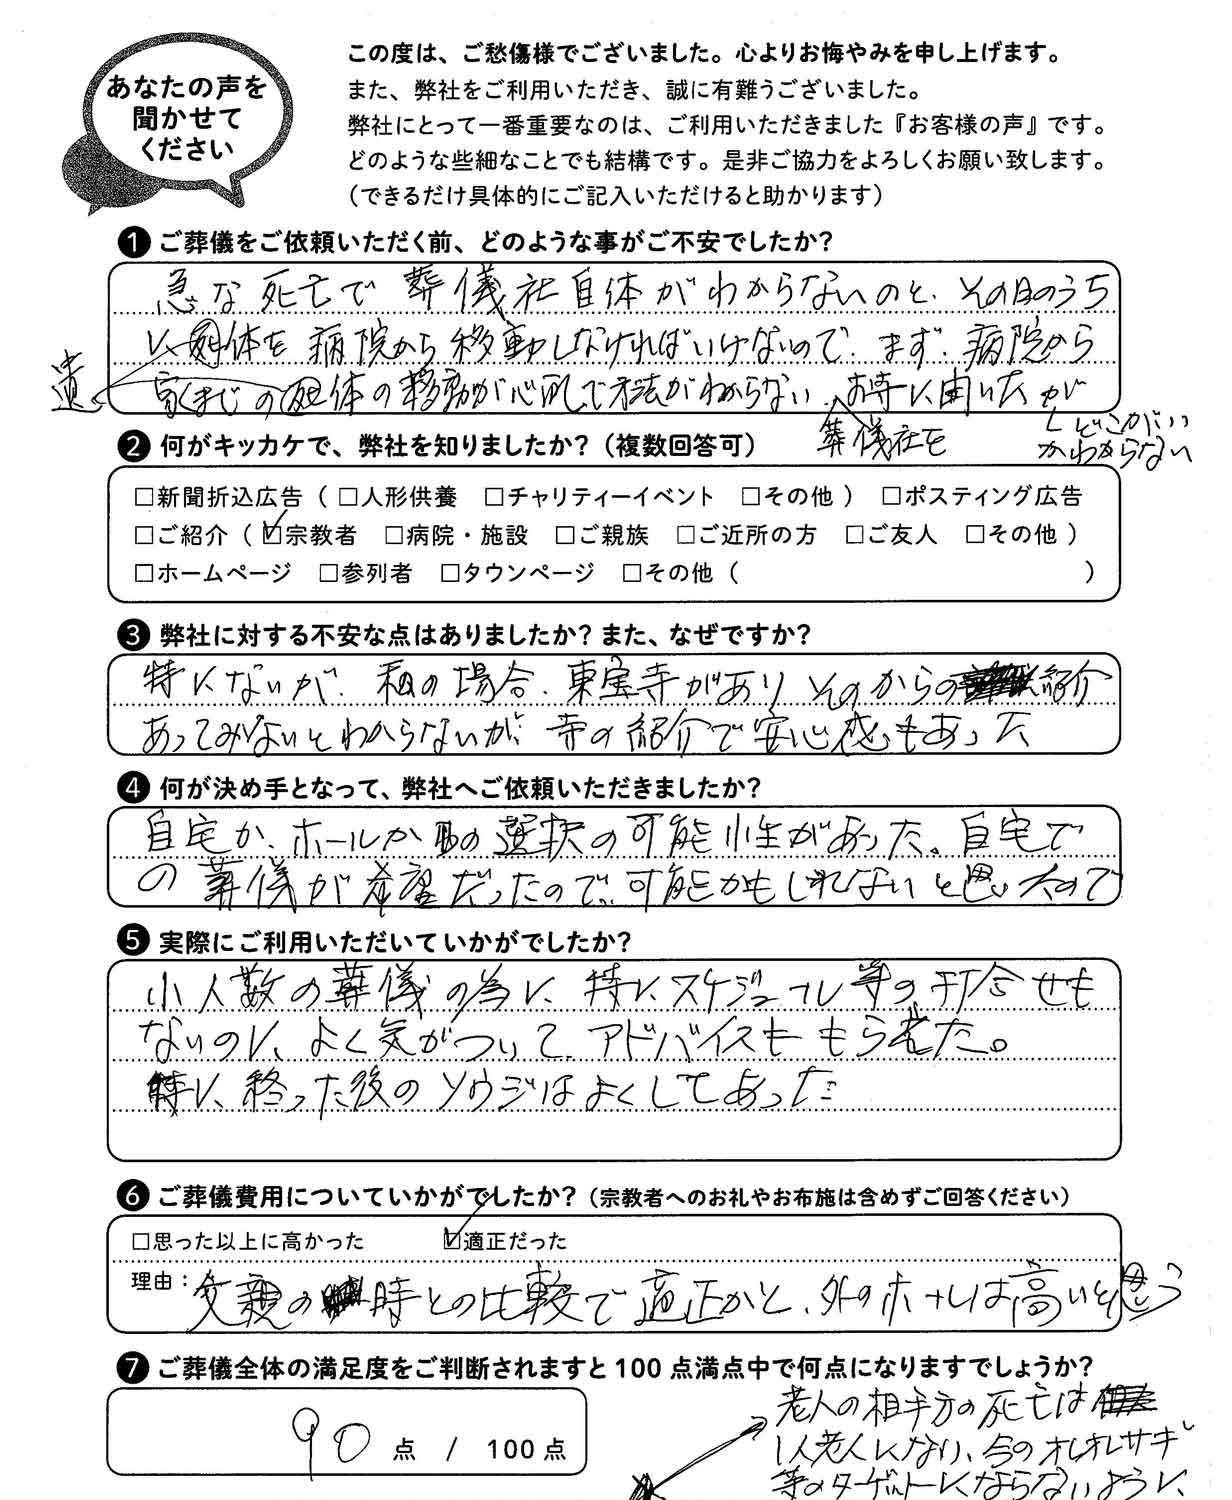 あなたの声を
聞かせて
ください
この度は、ご愁傷様でございました。心よりお悔やみを申し上げます。
また、弊社をご利用いただき、誠に有難うございました。
弊社にとって一番重要なのは、ご利用いただきました『お客様の声』です。
どのような些細なことでも結構です。是非ご協力をよろしくお願い致します。
（できるだけ具体的にご記入いただけると助かります）
1 ご葬儀をご依頼いただく前、どのような事がご不安でしたか？
急な死亡で葬儀社自体がわからないのと、その日のうち
に 体を病院から移動しなければいけないので、まず、病院から
遺
家までの 体の移動が心配で方法がわからない、お寺に聞いたが
葬儀社を
どこがいい
かわからない
2 何がキッカケで、弊社を知りましたか？（複数回答可）
□新聞折込広告（□人形供養 □チャリティーイベント □その他） □ポスティング広告
□ご紹介（☑宗教者 □病院・施設 □ご親族 □ご近所の方 □ご友人 □その他）
□ホームページ □参列者 □タウンページ □その他（ ）
3 弊社に対する不安な点はありましたか？また、なぜですか？
特にないが、私の場合、東宝寺があり そのからの紹介
あってみないとわからないが、寺の紹介で安心感もあった
4 何が決め手となって、弊社へご依頼いただきましたか？
自宅か、ホールかの選択の可能性があった。自宅で
の葬儀が希望だったので、可能かもしれないと思ったので
5 実際にご利用いただいていかがでしたか？
小人数の葬儀の為に、特にスケジュール等の打合せも
ないのに、よく気がついて、アドバイスももらえた。
特に、終った後のソウジはよくしてあった
6 ご葬儀費用についていかがでしたか？（宗教者へのお礼やお布施は含めずご回答ください）
□思った以上に高かった ☑適正だった
理由：父親の時との比較で適正かと、外のホールは高いと思う
7 ご葬儀全体の満足度をご判断されますと100点満点中で何点になりますでしょうか？
90 点 / 100点
老人の相手方の死亡は
1人老人になり、今のオレオレサギ
等のターゲットにならないように、